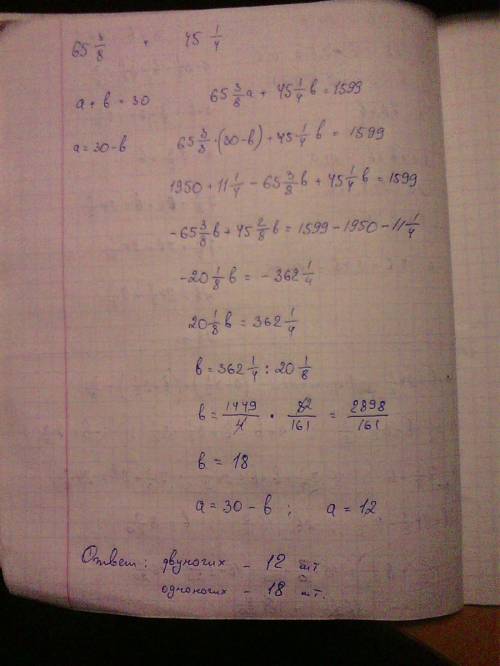 65 3/8 . 45 1/4
a + b = 30 65 3/8 a + 45 1/4 b = 1599
a = 30 - b 65 3/8 · (30 - b) + 45 1/4 b = 1599
1950 + 11 1/4 - 65 3/8 b + 45 1/4 b = 1599
-65 3/8 b + 45 2/8 b = 1599 - 1950 - 11 1/4
-20 1/8 b = -362 1/4
20 1/8 b = 362 1/4
b = 362 1/4 : 20 1/8
b = 1449/4 · 82/161 = 2898/161
b = 18
a = 30 - b ; a = 12
Ответ: двуногих - 12 шт
одноногих - 18 шт.